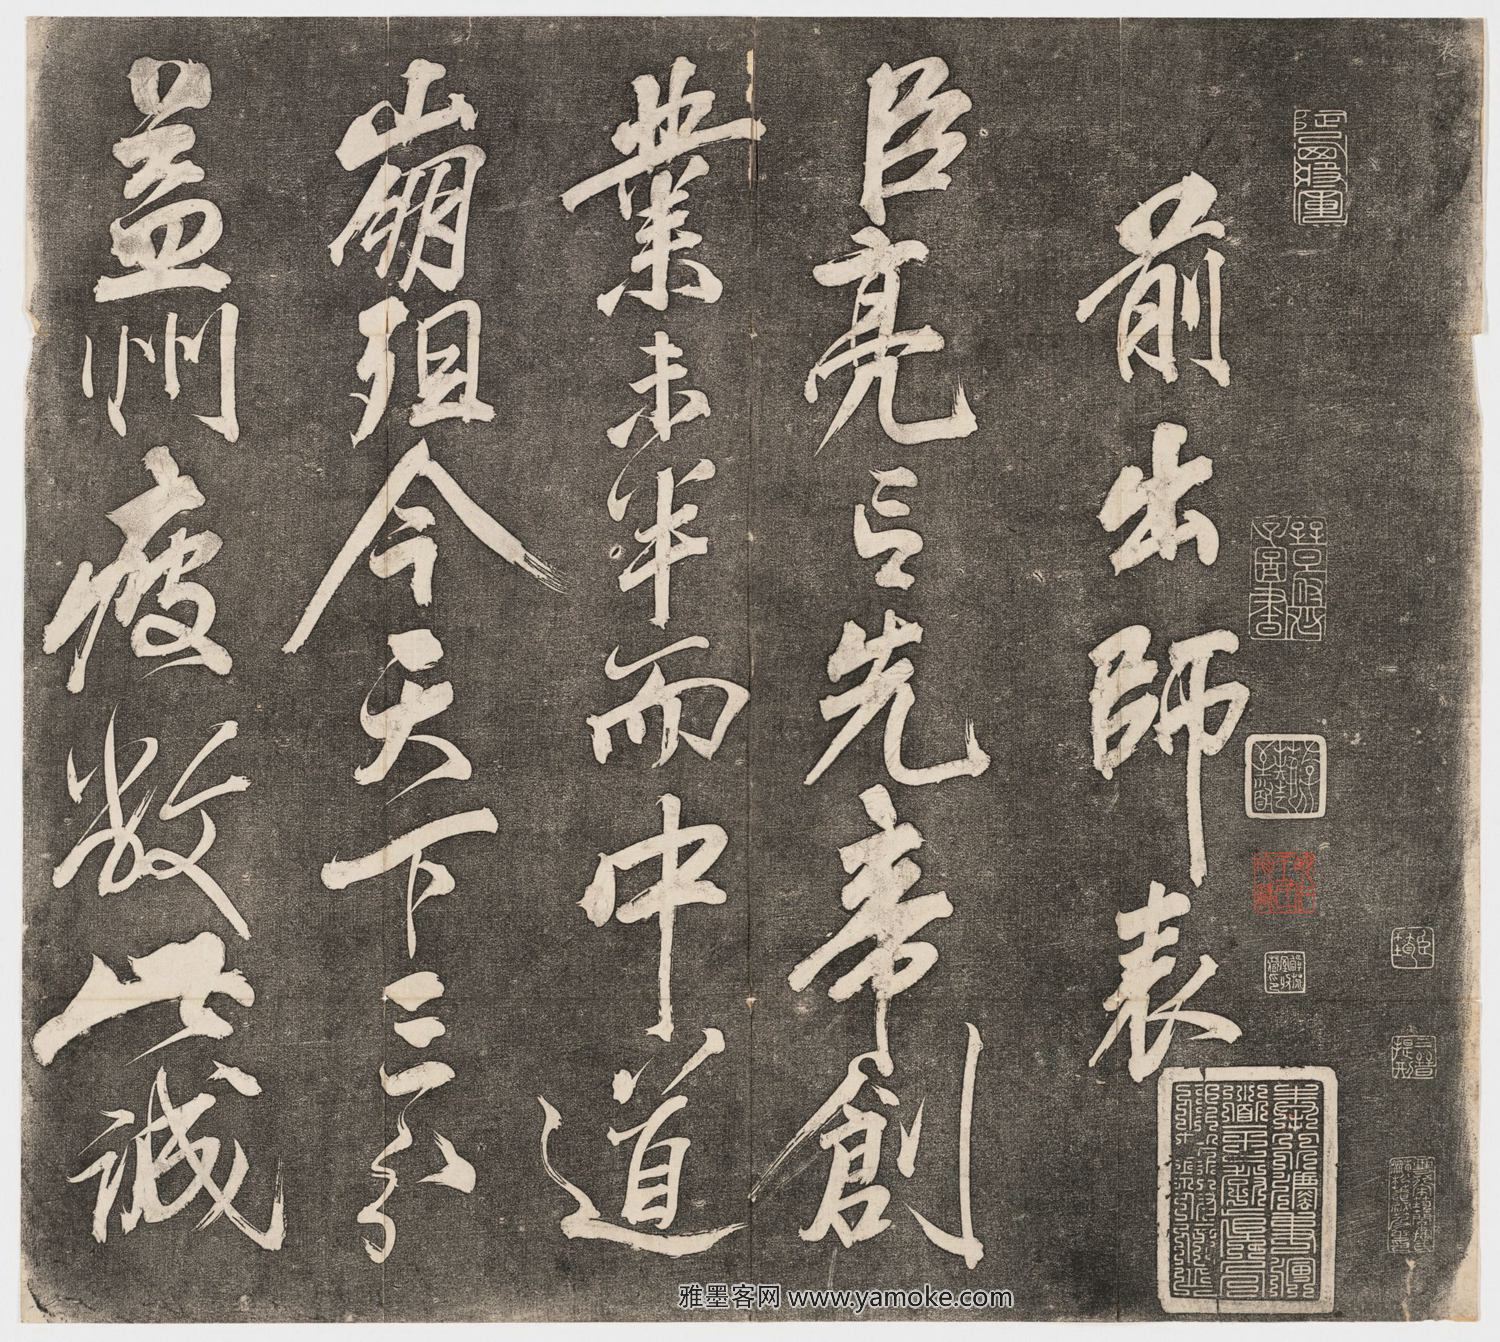 前出師表
臣亮言先帝創
業未半而中道
崩殂今天下三分
益州疲敝此誠
雅墨客网 www.yamoke.com